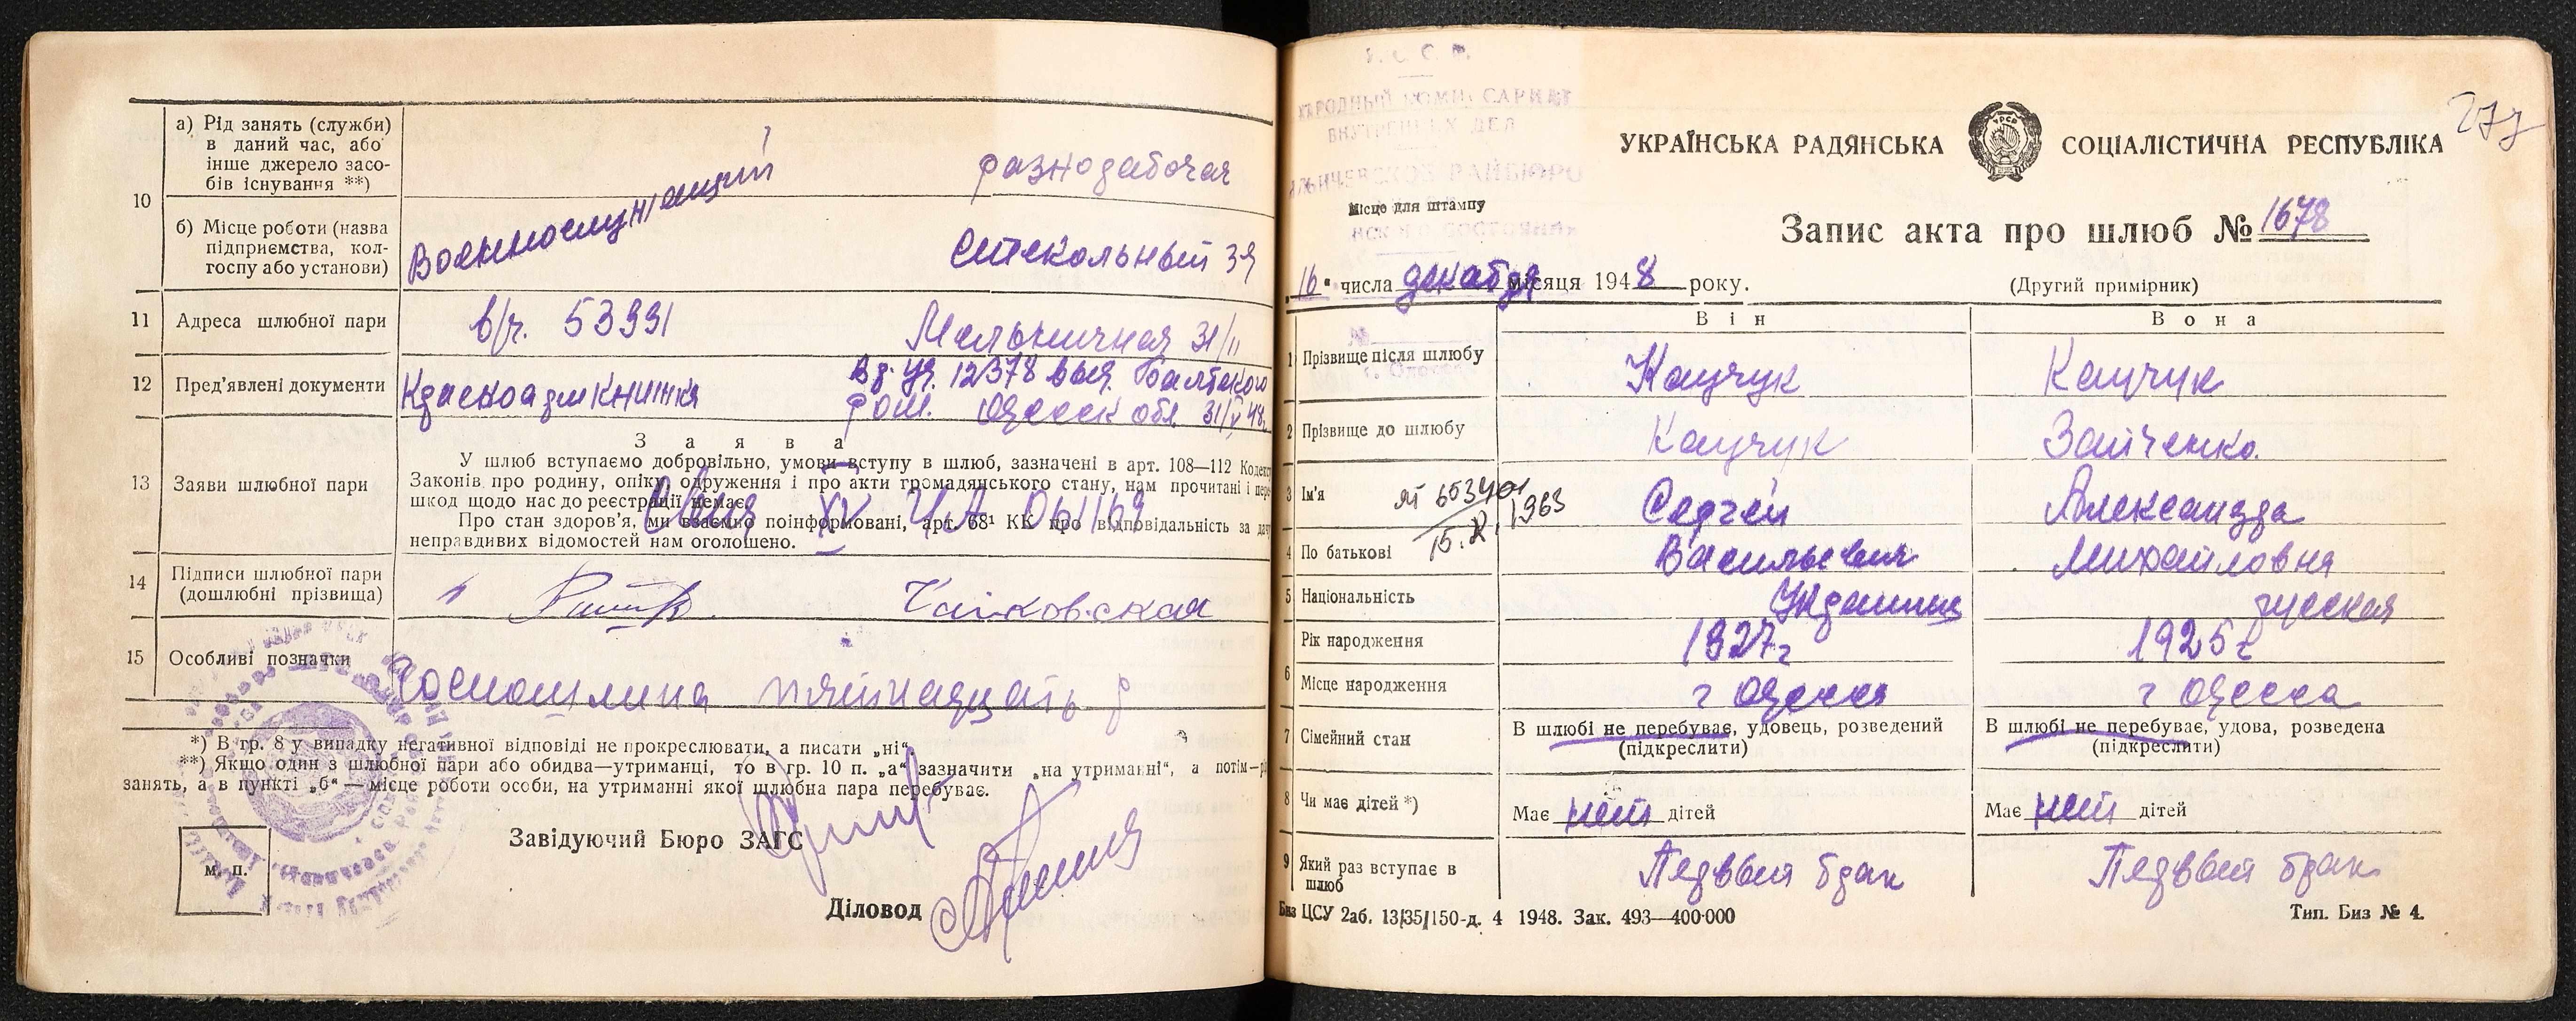 10
а) Рід занять (служби)
в даний час, або
інше джерело засо-
бів існування **)
разнорабочая
б) Місце роботи (назва
підприємства, кол-
госпу або установи)
Военнослужащий
Стекольный з-д
11 Адреса шлюбної пари
в/ч. 53991
Мельничная 31/11
12 Пред'явлені документи
Красноарм книжка
Вр. уд. 12378 выд. Балтского
РОМ. Одесск обл. 31/V 48.
13 Заяви шлюбної пари
З а я в а
У шлюб вступаємо добровільно, умови вступу в шлюб, зазначені в арт. 108—112
Законів про родину, опіку, одруження і про акти громадянського стану, нам прочитані і
шкод щодо нас до реєстрації немає.
Про стан здоров'я, ми взаємно поінформовані, арт. 68¹ КК про відповідальність за
неправдивих відомостей нам оголошено.
XV ЧА 061169
14 Підписи шлюбної пари
(дошлюбні прізвища)
15 Особливі позначки
Госпошлина пятнадцать р
*) В гр. 8 у випадку негативної відповіді не прокреслювати, а писати „ні“
**) Якщо один з шлюбної пари або обидва—утриманці, то в гр. 10 п. „а“ зазначити „на утриманні“, а потім—
занять, а в пункті „б“ — місце роботи особи, на утриманні якої шлюбна пара перебуває.
Завідуючий Бюро ЗАГС
м. п.
Діловод
277
НАРОДНЫЙ КОМИССАРИАТ
ВНУТРЕННИХ ДЕЛ
ИЛЬИЧЕВСКОЕ РАЙБЮРО
Місце для штампу
УКРАЇНСЬКА РАДЯНСЬКА СОЦІАЛІСТИЧНА РЕСПУБЛІКА
Запис акта про шлюб № 1678
„16“ числа декабря місяця 1948 року.
(Другий примірник)
В і н В о н а
1 Прізвище після шлюбу Каучук Каучук
2 Прізвище до шлюбу Каучук Зайченко.
3 Ім'я Сергей Александра
15.X.1963
4 По батькові Васильевич Михайловна
5 Національність Украинец русская
6 Рік народження 1927г 1925г
Місце народження г Одесса г Одесса
7 Сімейний стан В шлюбі не перебуває, удовець, розведений В шлюбі не перебуває, удова, розведена
(підкреслити) (підкреслити)
8 Чи має дітей *) Має нет дітей Має нет дітей
9 Який раз вступає в
шлюб
Первый брак Первый брак
ЦСУ 2аб. 13/35/150-д. 4 1948. Зак. 493—400·000 Тип. Биз № 4.